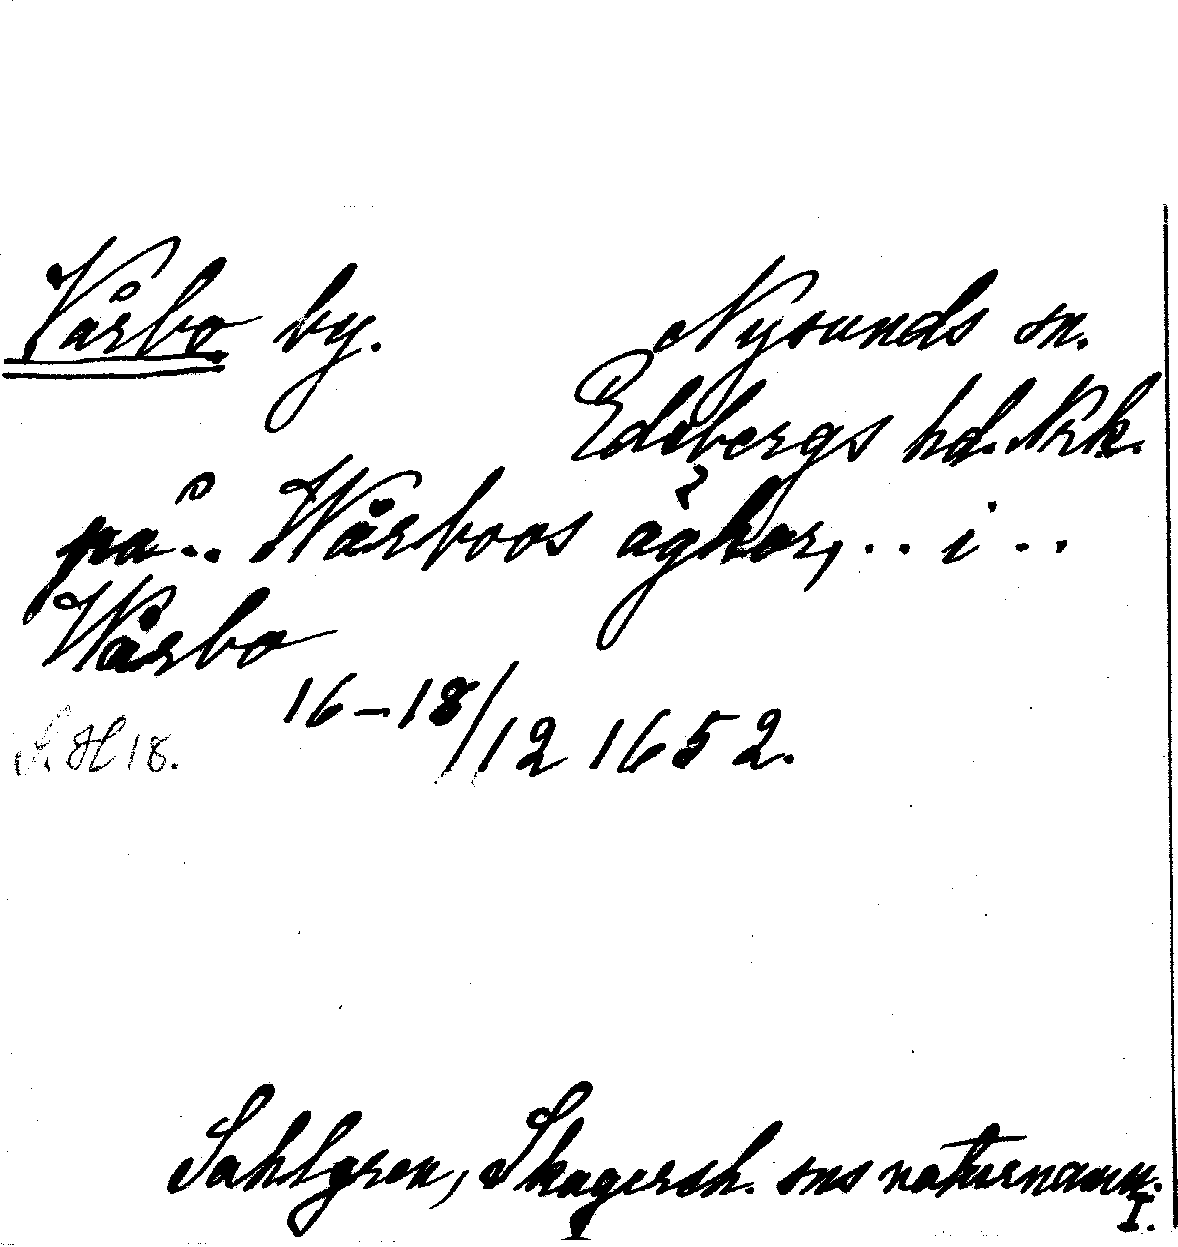 Vårbo by. Nysunds sn.
Edsbergs hd. Nrk.
på .. Wårboos ägher, .. i ..
Wårbo
16-18/12 1652.
S. H 18.
Sahlgren, Skagersh. sns naturnamn.
I.